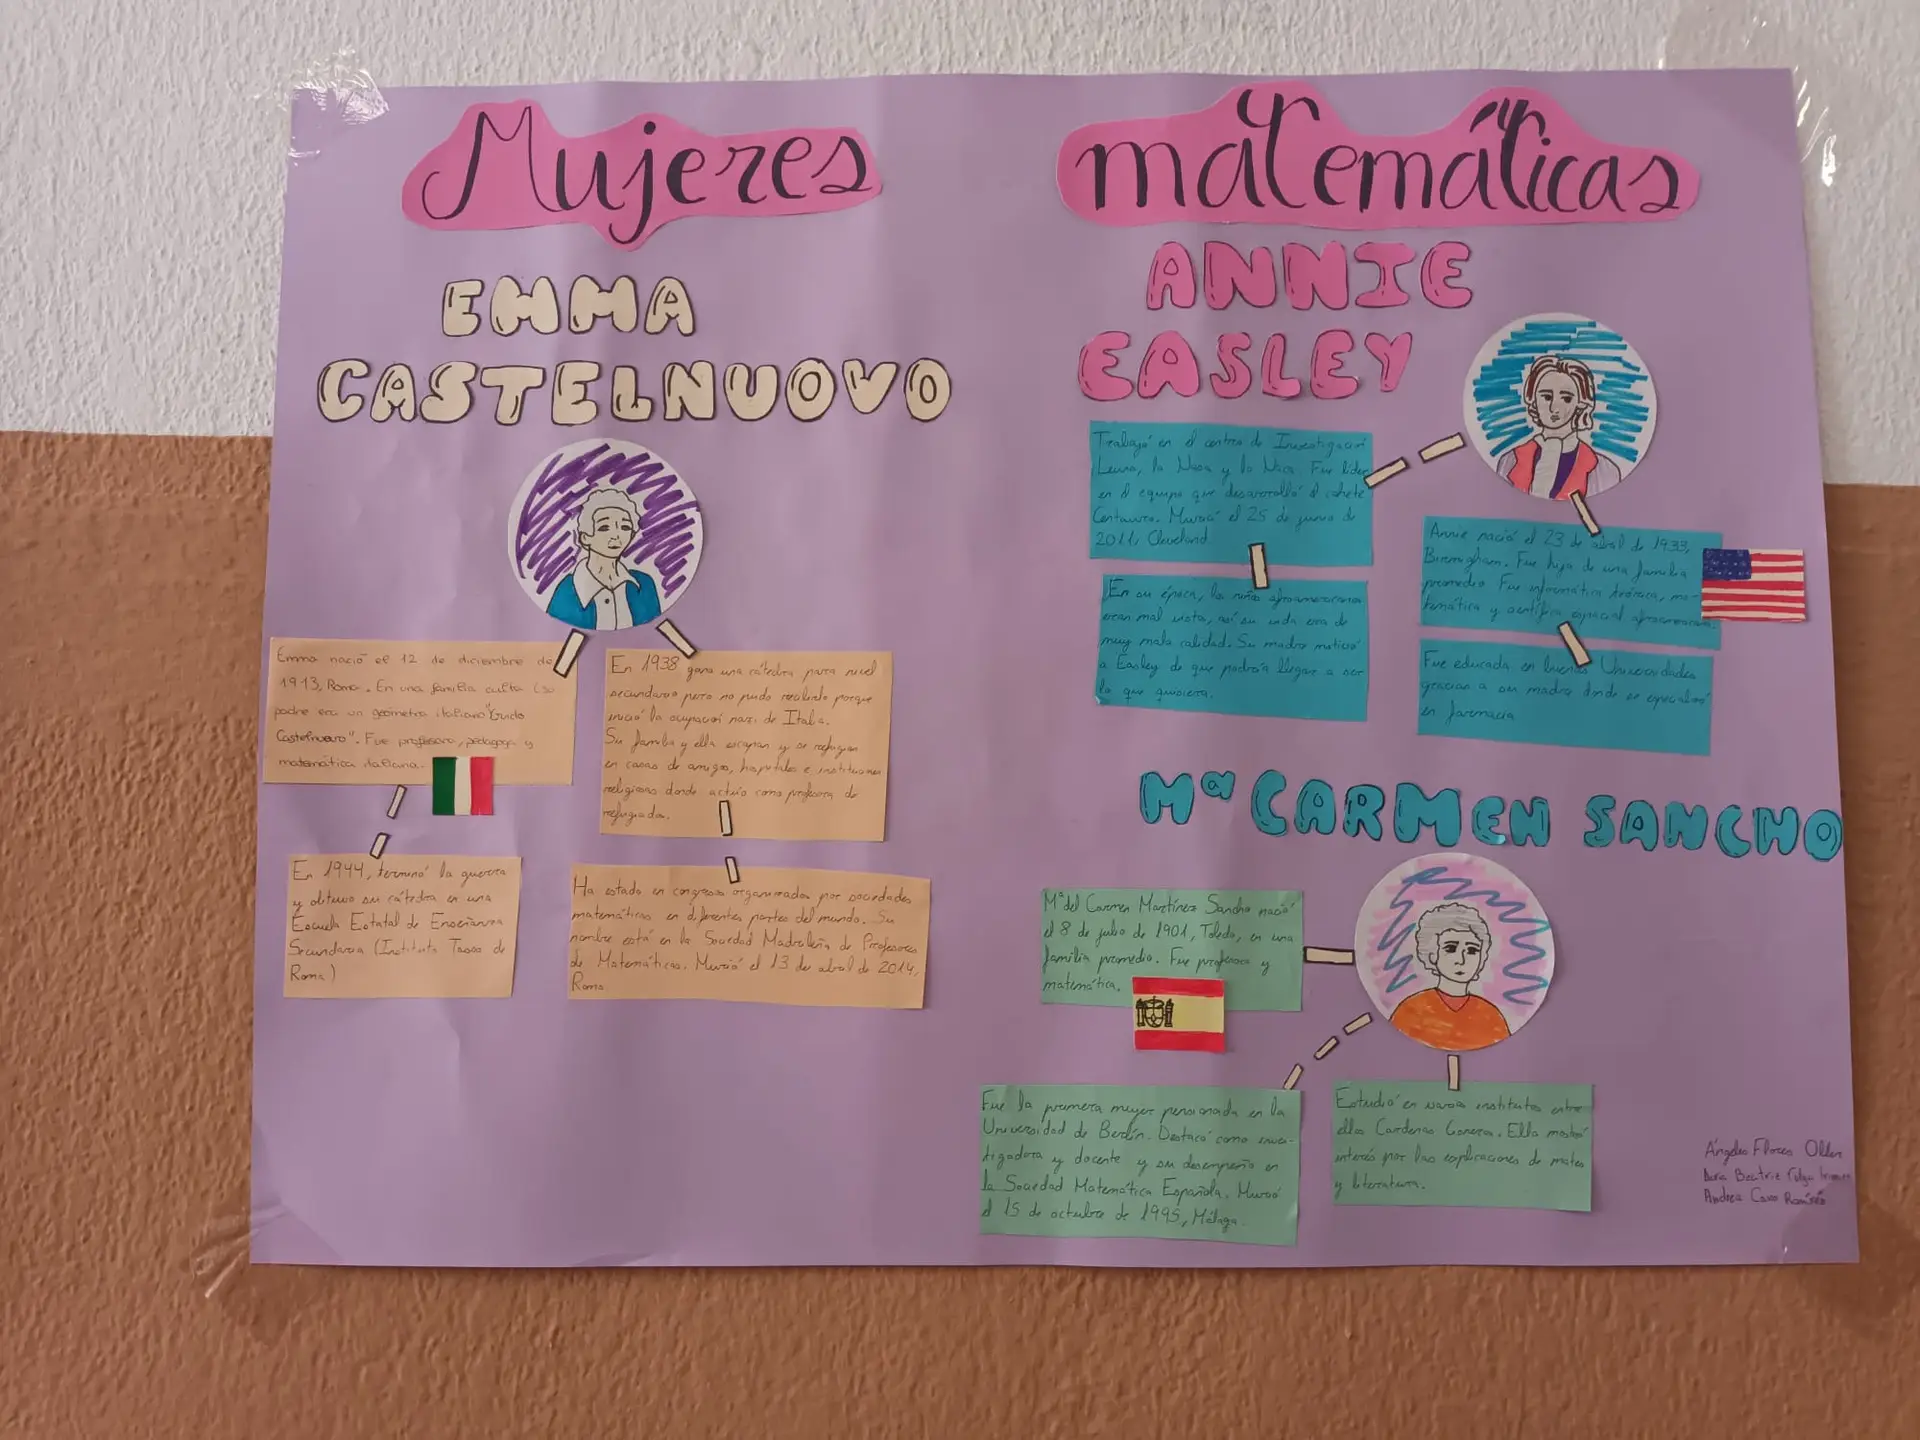 Mujeres matemáticas
EMMA
CASTELNUOVO
Emma nació el 12 de diciembre de
1913, Roma. En una familia culta (su
padre era un geómetra italiano "Guido
Castelnuovo". Fue profesora, pedagoga y
matemática italiana.
En 1938 gana una cátedra para nivel
secundario pero no pudo recibirlo porque
inició la ocupación nazi de Italia.
Su familia y ella escapan y se refugian
en casas de amigos, hospitales e instituciones
religiosas donde actúo como profesora de
refugiados.
En 1944, terminó la guerra
y obtuvo su cátedra en una
Escuela Estatal de Enseñanza
Secundaria (Instituto Tasso de
Roma)
Ha estado en congresos organizados por sociedades
matemáticas en diferentes partes del mundo. Su
nombre está en la Sociedad Madrileña de Profesores
de Matemáticas. Murió el 13 de abril de 2014,
Roma
ANNIE
EASLEY
Trabajó en el centro de Investigación
Lewis, la Nasa y la Naca. Fue líder
en el equipo que desarrolló el cohete
Centauro. Murió el 25 de junio de
2011, Cleveland
En su época, las niñas afroamericanas
eran mal vista, así su vida era de
muy mala calidad. Su madre motivó
a Easley de que podría llegar a ser
lo que quisiera.
Annie nació el 23 de abril de 1933,
Birmigham. Fue hija de una familia
promedio. Fue informática teórica, ma-
temática y científica espacial afroamericana.
Fue educada en buenas Universidades
gracias a su madre donde se especializó
en farmacia
Mª CARMEN SANCHO
Mª del Carmen Martínez Sancho nació
el 8 de julio de 1901, Toledo, en una
familia promedio. Fue profesora y
matemática.
Fue la primera mujer pensionada en la
Universidad de Berlín. Destacó como inves-
tigadora y docente y su desempeño en
la Sociedad Matemática Española. Murió
el 15 de octubre de 1995, Málaga.
Estudió en varios institutos entre
ellos Cardenal Cisneros. Ella mostró
interés por las explicaciones de mates
y literatura.
Ángeles Flores
Beatriz
Andrea Cano